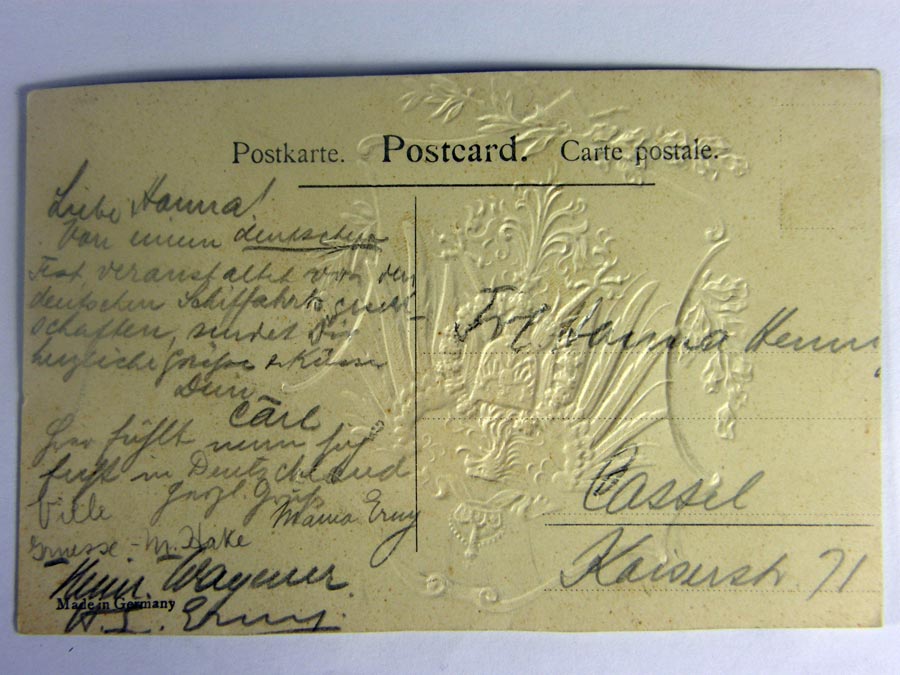 Postkarte. Postcard. Carte postale.
Liebe Hanna!
Von einem deutschen
Fest veranstaltet von den
deutschen Schiffahrtsgesell-
schaften, sendet Dir
herzliche Grüße & Küsse
Dein
Carl
Hier fühlt man sich
in Deutschland
Herzl. Gruß
Mama Erny
Ville
Gruesse - M. Hake
Wagener.
Made in Germany
Erny.
Frl Hanna
Cassel
Kaiserstr 71